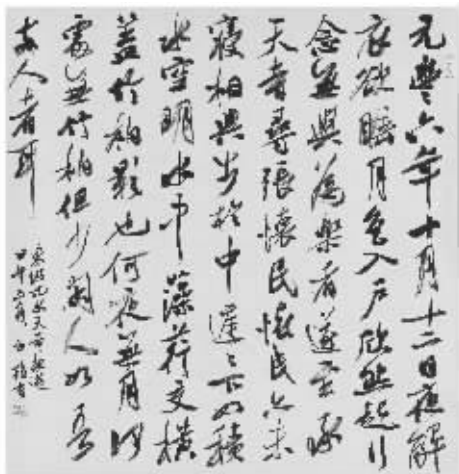 元豐六年十月十二日夜解
衣欲睡月色入戶欣然起行
念無與為樂者遂至承
天寺尋張懷民懷民亦未
寢相與步於中庭〻下如積
水空明水中藻荇交橫
蓋竹柏影也何夜無月何
處無竹柏但少閑人如吾
兩人者耳
東坡記承天寺夜遊